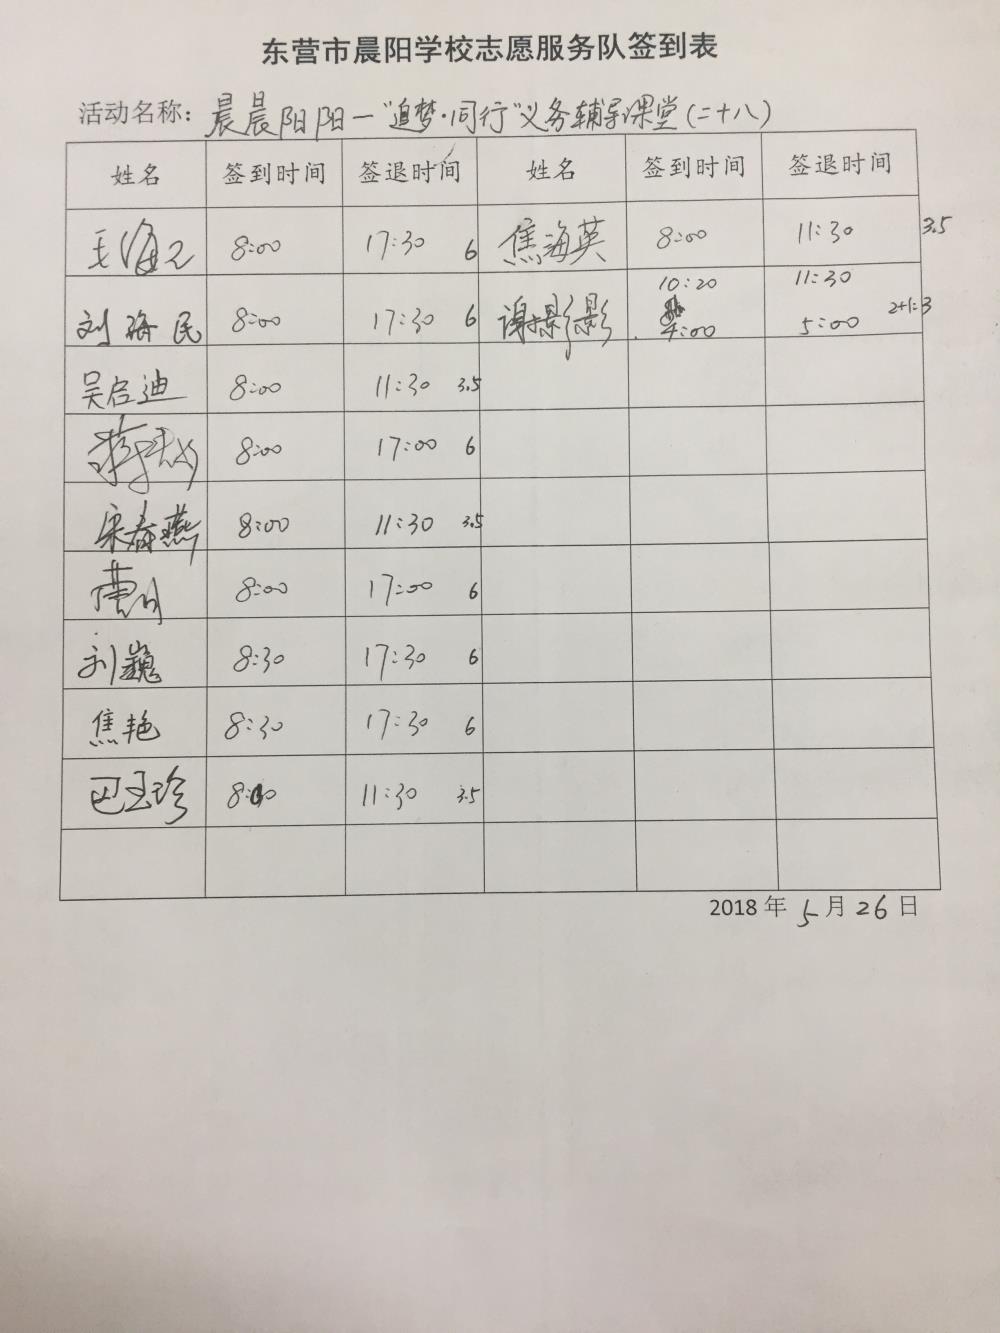 东营市晨阳学校志愿服务队签到表
活动名称：晨晨阳阳—“追梦·同行”义务辅导课堂(二十八)
姓名 签到时间 签退时间 姓名 签到时间 签退时间
8:00 17:30 6 焦海英 8:00 11:30 3.5
刘海民 8:00 17:30 6 谢影影 10:20 11:30
4:00 5:00 2+1=3
吴启迪 8:00 11:30 3.5
8:00 17:00 6
宋春燕 8:00 11:30 3.5
8:00 17:00 6
刘巍 8:30 17:30 6
焦艳 8:30 17:30 6
巴玉珍 11:30 3.5
2018年5月26日